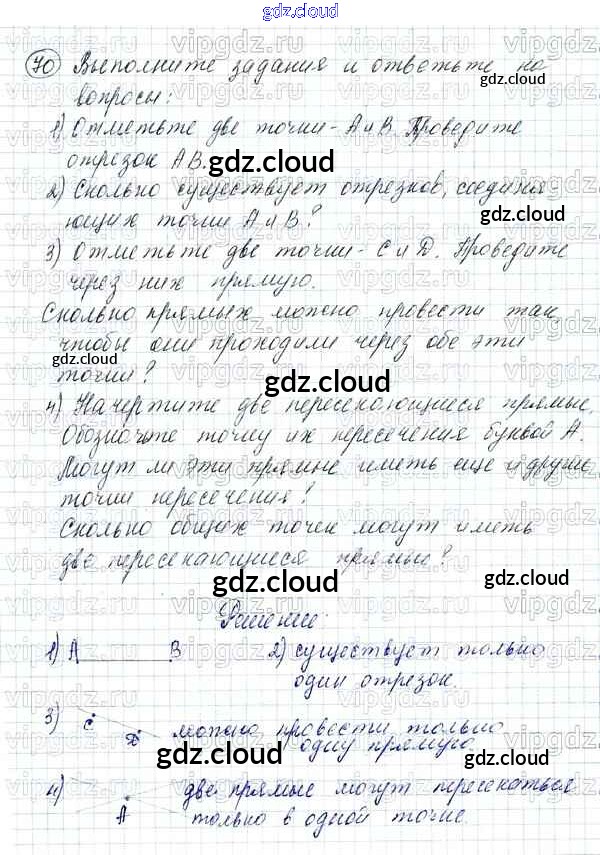 gdz.cloud
70 Выполните задания и ответьте на
вопросы:
1) Отметьте две точки - А и В. Проведите
отрезок АВ.
2) Сколько существует отрезков, соединя
ющих точки А и В?
3) Отметьте две точки - С и D. Проведите
через них прямую.
Сколько прямых можно провести так
чтобы они проходили через обе эти
точки?
4) Начертите две пересекающиеся прямые.
Обозначьте точку их пересечения буквой А.
Могут ли эти прямые иметь еще и другие
точки пересечения?
Сколько общих точек могут иметь
две пересекающиеся прямые?
Решение:
1) А В 2) существует только
один отрезок.
3) С D можно провести только
одну прямую.
4) А две прямые могут пересекаться
только в одной точке.